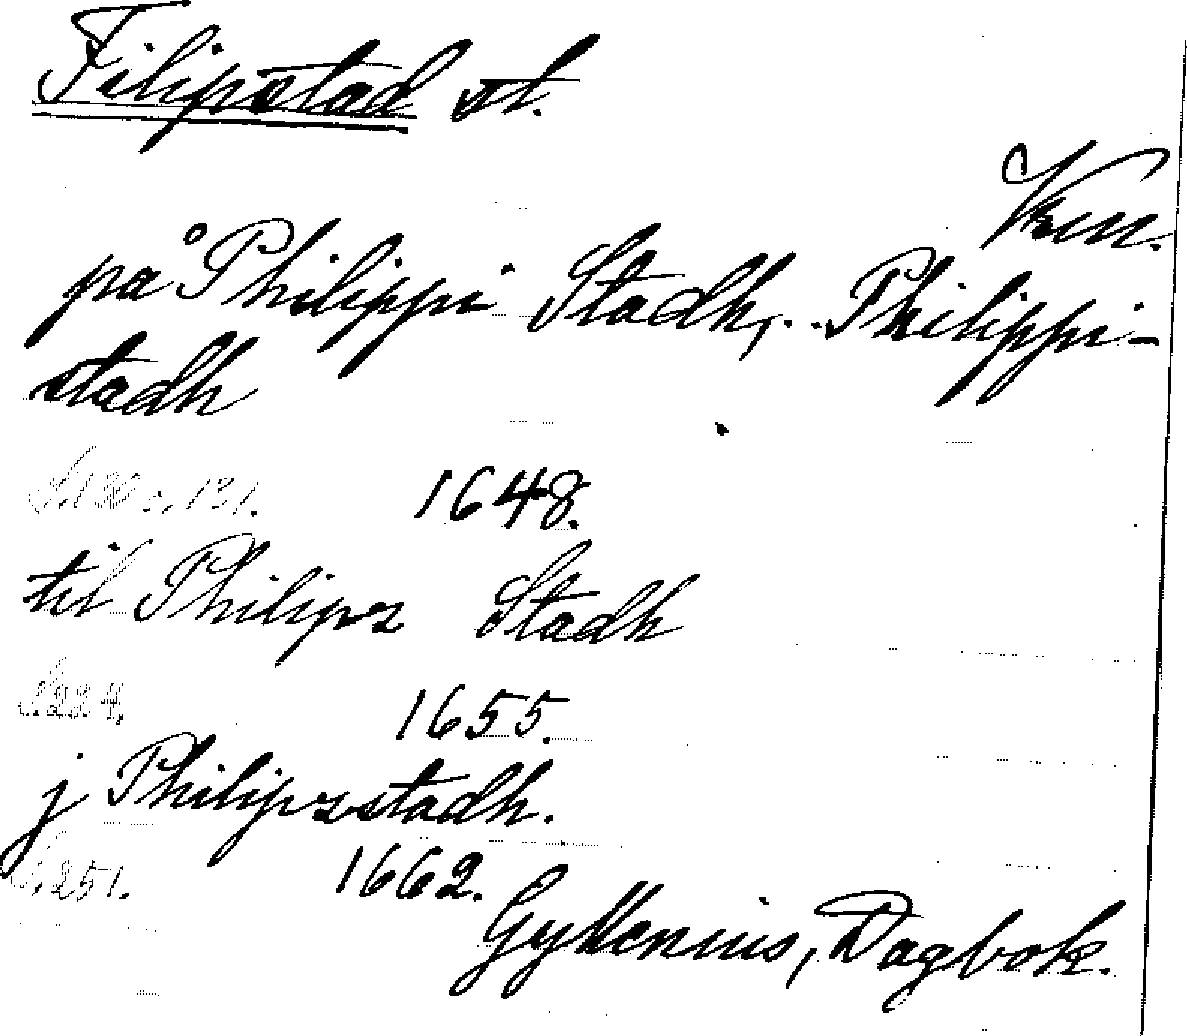 Filipstad st.
Vrm.
på Philippi Stadh, . . Philippi-
stadh
S. 130 o. 131. 1648.
til Philips Stadh
S. 224. 1655.
j Philipsstadh.
S. 251. 1662.
Gyllenius, Dagbok.